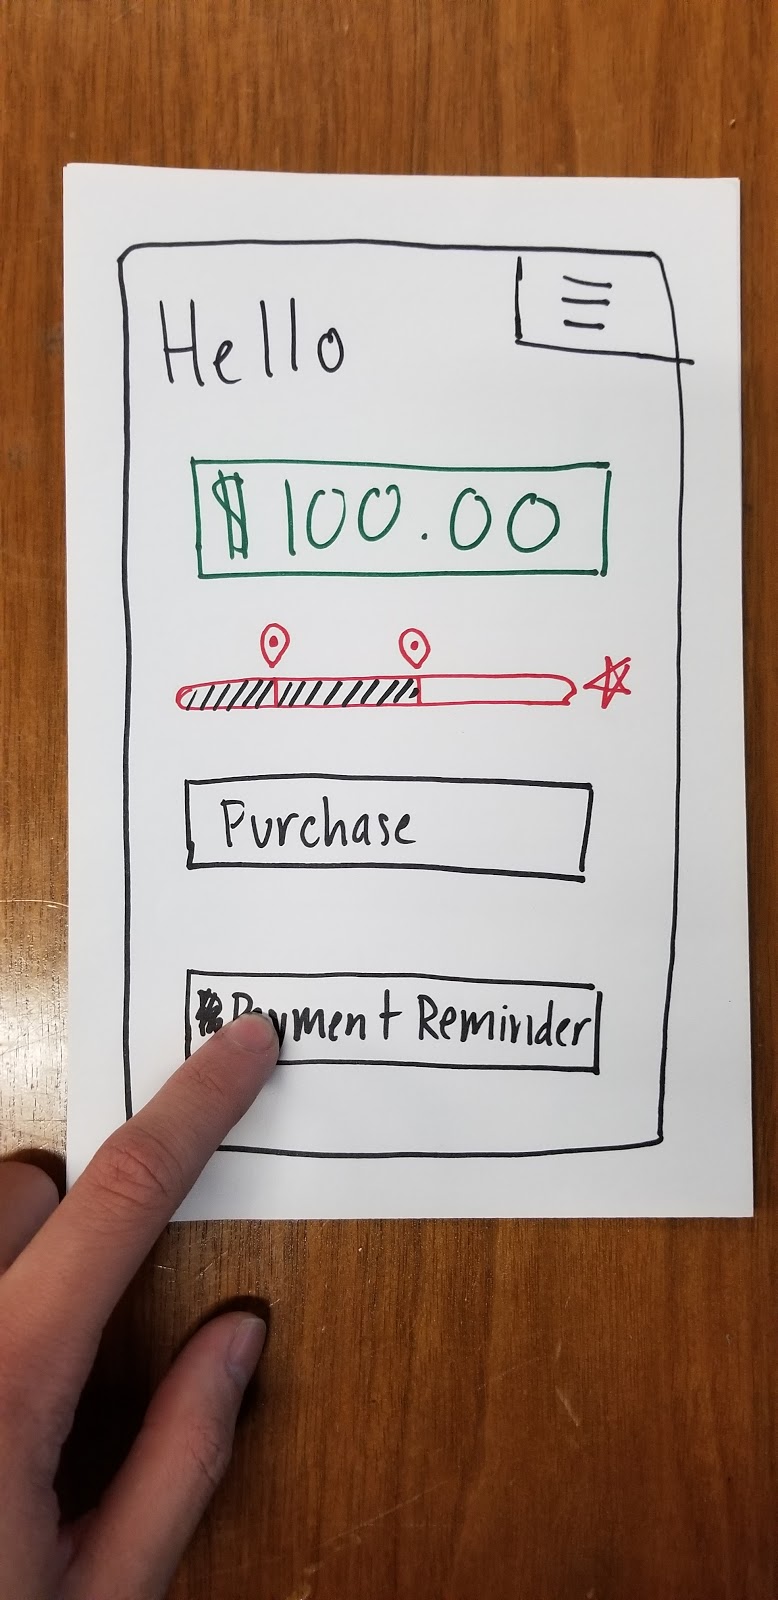 Hello
$100.00
Purchase
Payment Reminder